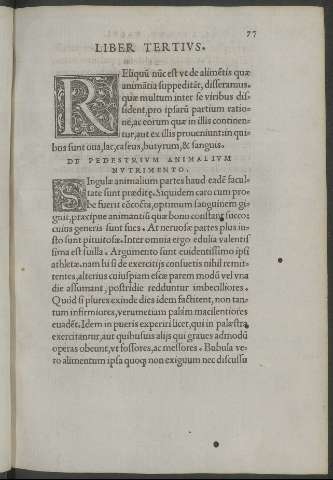 77
LIBER TERTIVS.
REliquū nūc est vt de alimētis quæ
animātia suppeditāt, disseramus.
quæ multum inter se viribus dis-
sident, pro ipsarū partium ratio-
ne, ac eorum quæ in illis continen-
tur, aut ex illis proueniunt: in qui-
bus sunt oua, lac, caseus, butyrum, & sanguis.
DE PEDESTRIVM ANIMALIVM
NVTRIMENTO.
SIngulæ animalium partes haud eadē facul-
tate sunt præditę. Siquidem caro cum pro-
be fuerit cōcocta, optimum sanguinem gi-
gnit, præsertim animantiū quæ bono constant succo:
cuius generis sunt sues. At neruosæ partes plus iu-
sto sunt pituitosæ. Inter omnia ergo edulia valentis
sima est suilla. Argumento sunt euidentissimo ipsi
athletæ. nam hi si de exercitijs consuetis nihil remit-
tentes, alterius cuiuspiam escæ parem modū vel vna
die assumant, postridie redduntur imbecilliores.
Quod si plures exinde dies idem factitent, non tan-
tum infirmiores, verumetiam palàm macilentiores
euadēt. Idem in pueris experiri licet, qui in palæstra
exercitantur, aut quibusuis alijs qui graues admodū
operas obeunt, vt fossores, ac messores. Bubula ve-
rò alimentum ipsa quoq; non exiguum nec discussu